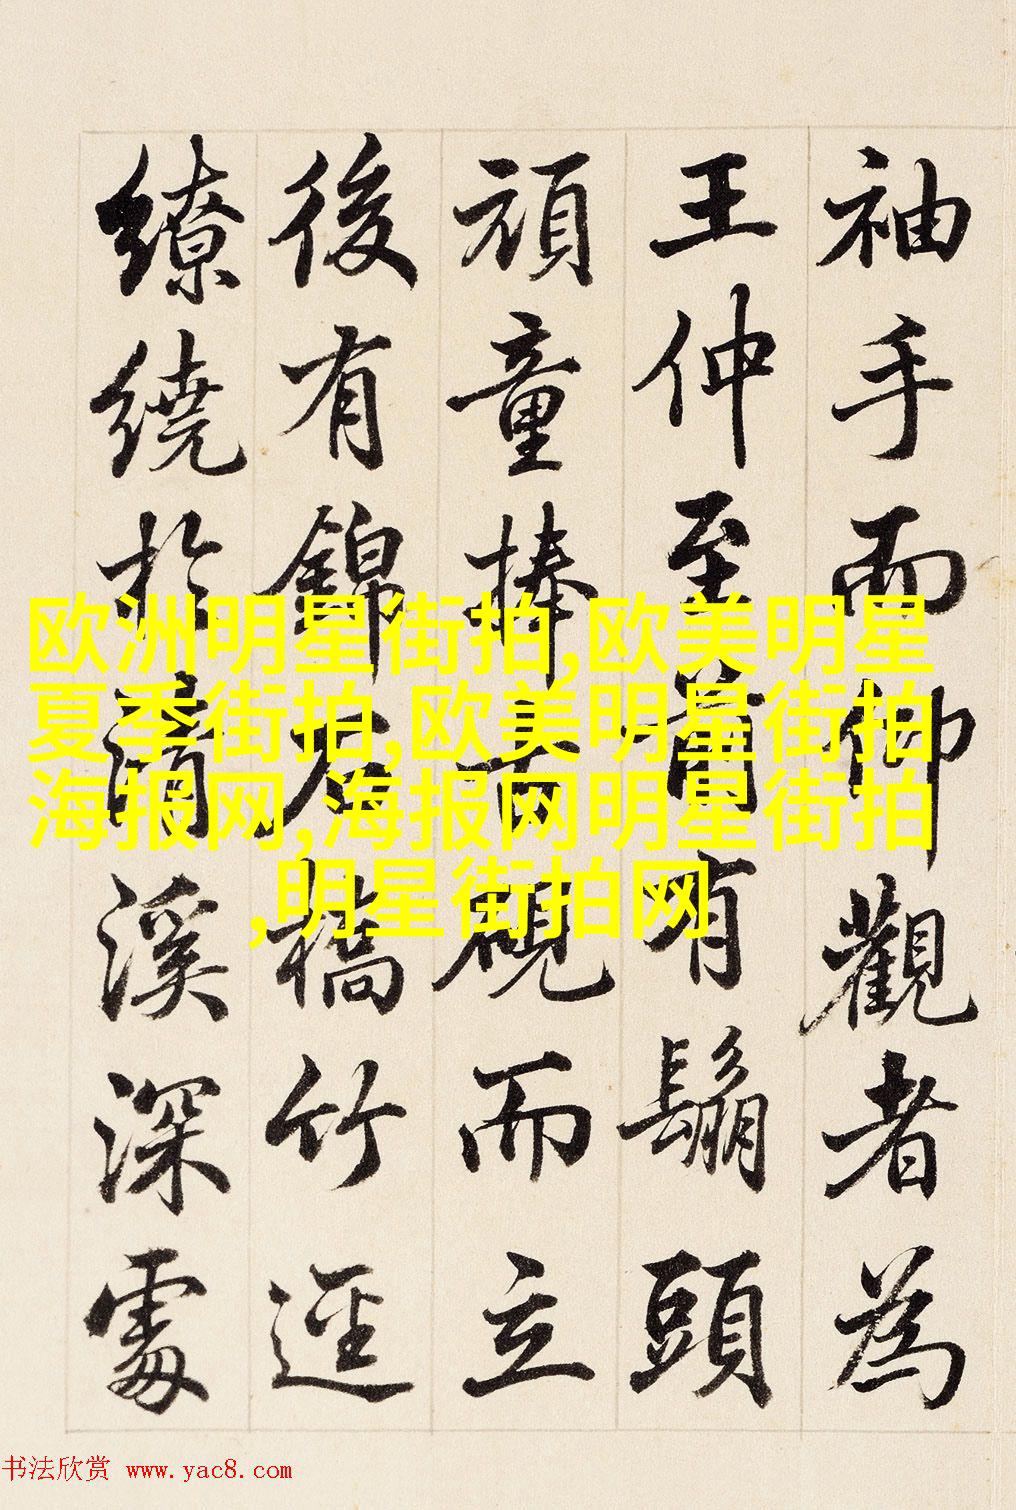 袖手而仰觀者為
王仲至前有鬅頭
頑童捧古硯而立
後有錦石橋竹逕
繚繞於清溪深處
欧洲明星街拍,欧美明星
夏季街拍,欧美明星街拍
海报网,海报网明星街拍
,明星街拍网
书法欣赏 www.yac8.com